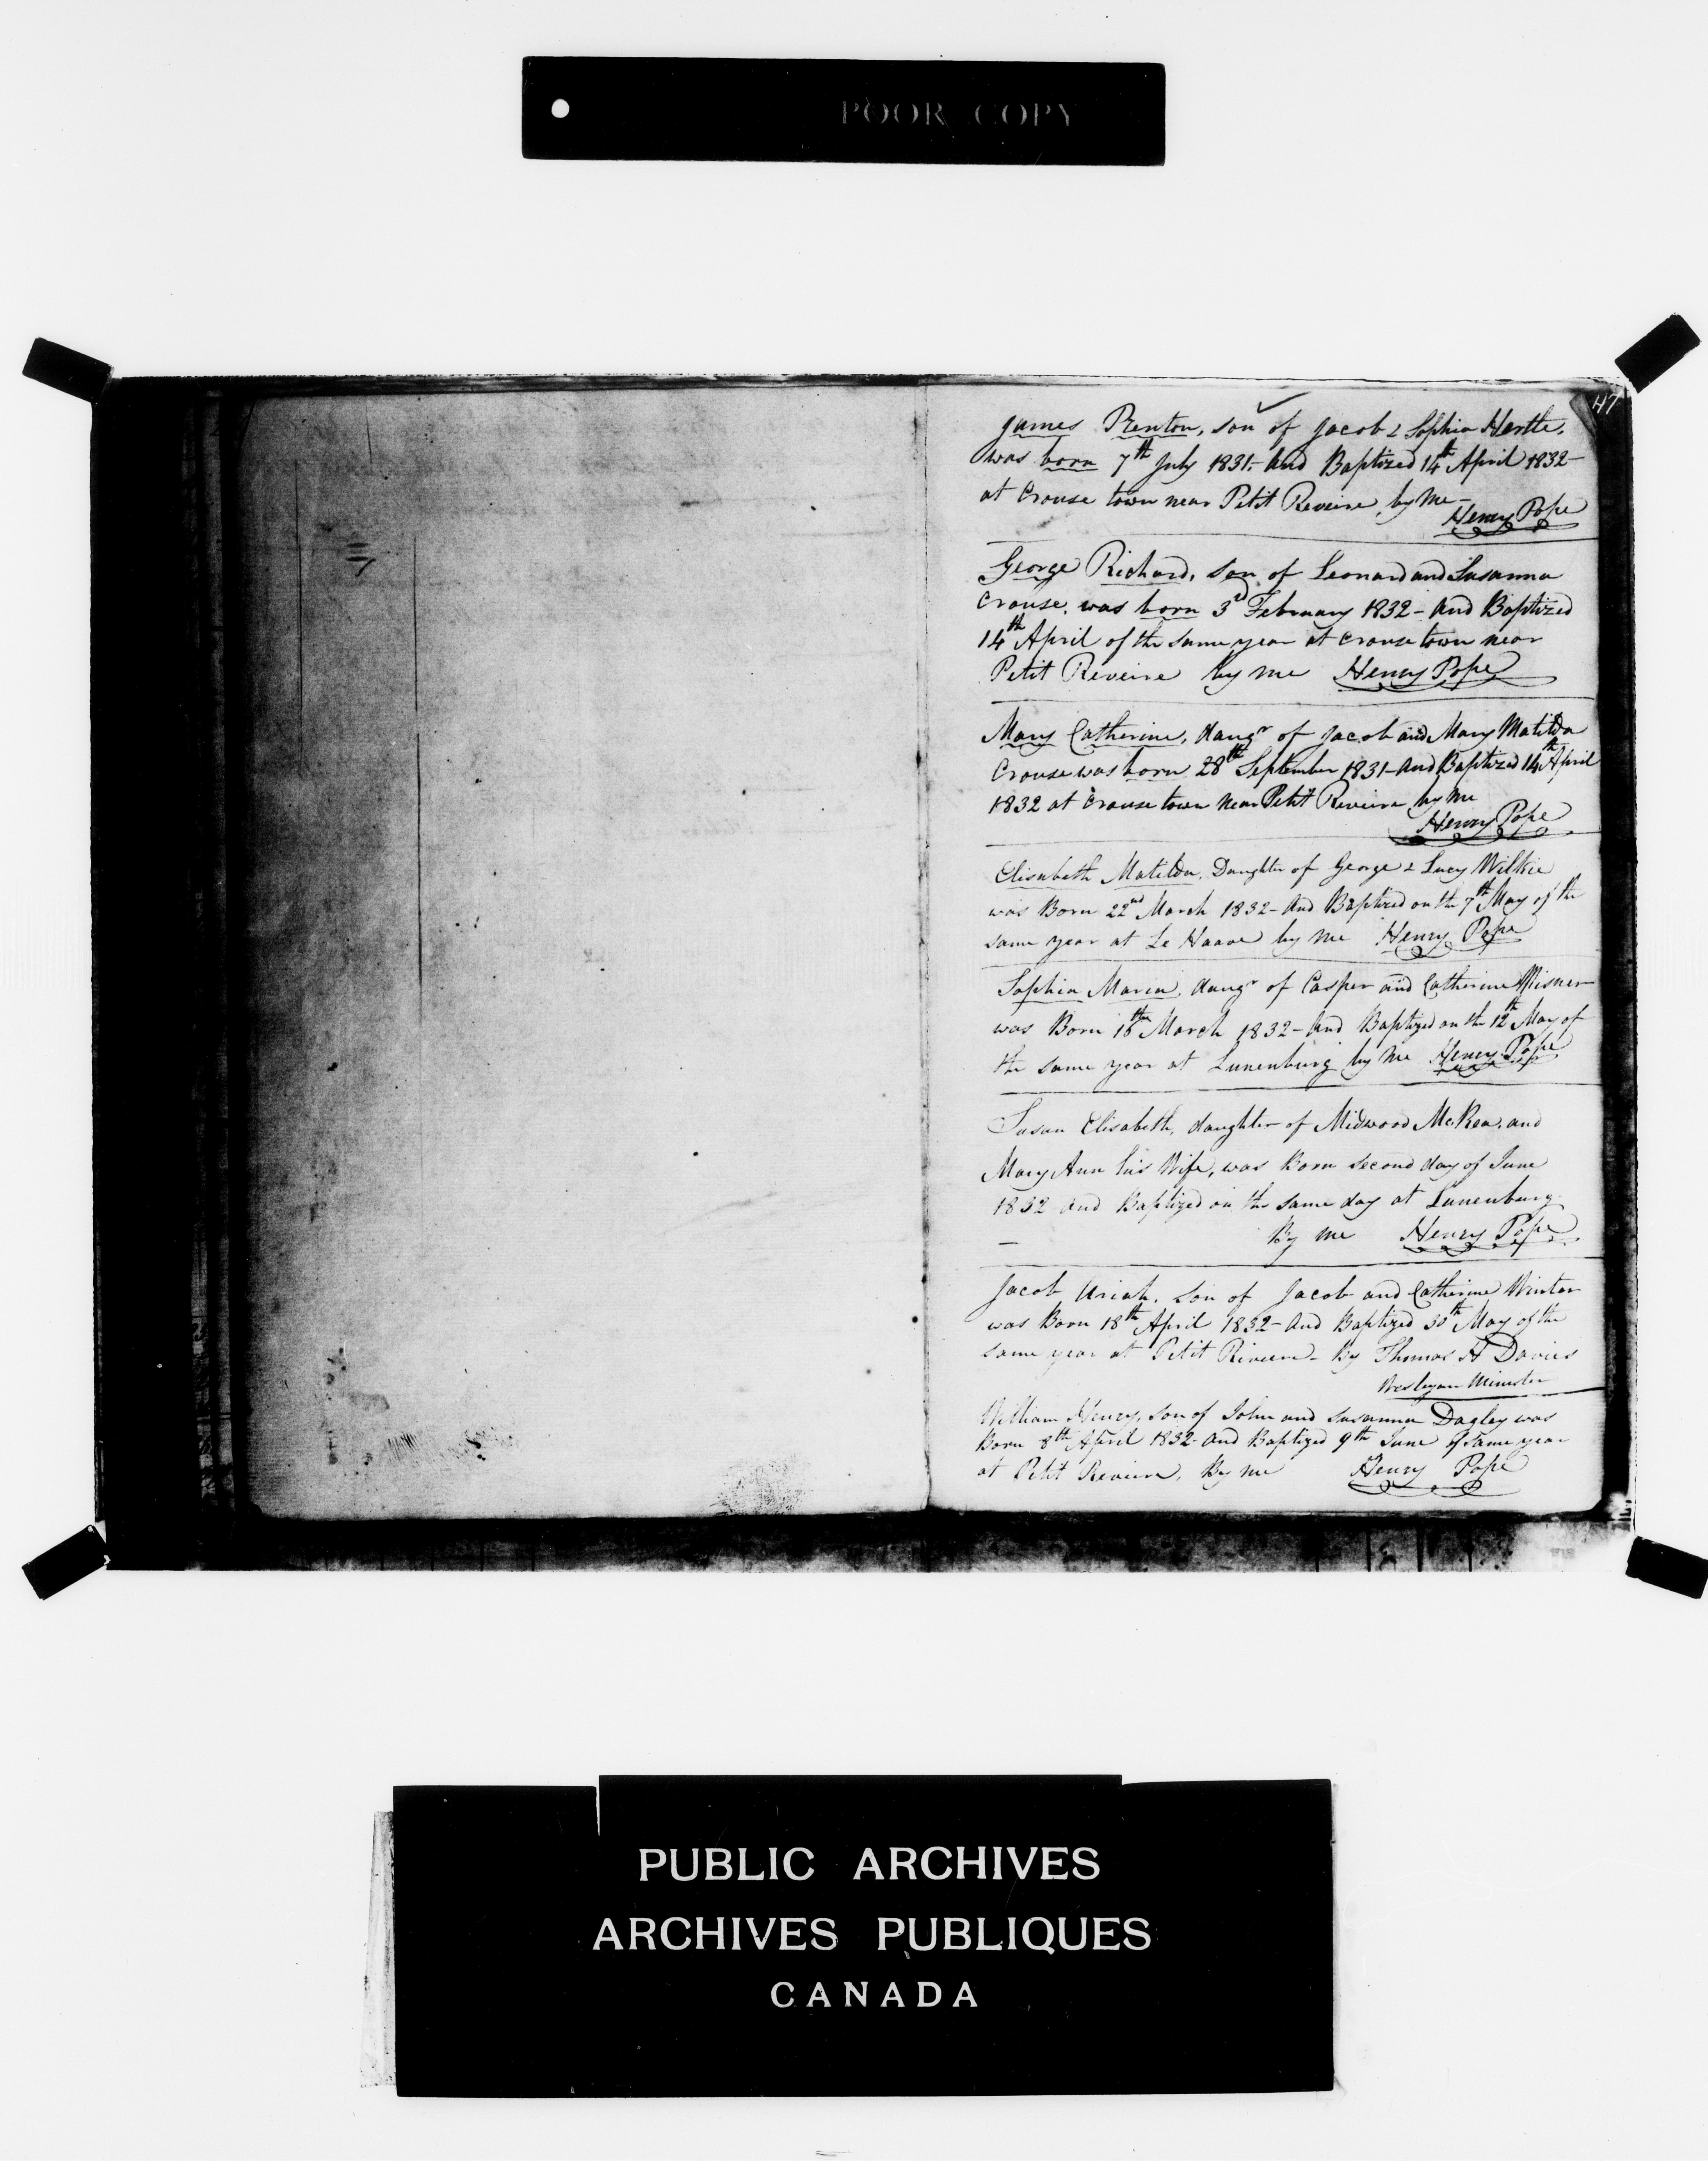 POOR COPY
47
James Renton, son of Jacob & Sophia Hertle,
was born 7th July 1831.- and Baptized 14th April 1832-
at Crouse town near Petit Reveire, by me-
Henry Pope
George Richard, son of Leonard and Susanna
Crouse, was born 3rd February 1832- and Baptized
14th April of the same year at Crouse town near
Petit Reveire by me Henry Pope
Mary Catherine, daugr of Jacob and Mary Matilda
Crouse was born 28th September 1831- and Baptized 14th April
1832 at Crouse town near Petit Reveire by me
Henry Pope
Elisabeth Matilda, Daughter of George & Lucy Wilkie
was Born 22nd March 1832- and Baptized on the 7th May of the
same year at Le Haave by me Henry Pope
Sophia Maria, daugr of Casper and Catherine Misner
was Born 16th March 1832- and Baptized on the 12th May of
the same year at Lunenburg by me Henry Pope
Susan Elisabeth, daughter of Midwood McRea, and
Mary Ann his Wife, was Born second day of June
1832 and Baptized on the same day at Lunenburg
By me Henry Pope
Jacob Uriah, Son of Jacob and Catherine Winter
was Born 18th April 1832- and Baptized 30th May of the
same year at Petit Riviere- By Thomas H Davies
Wesleyan Minister
William Henry, son of John and Susanna Dagley was
Born 8th April 1832- and Baptized 9th June of same year
at Petit Reveire, By me Henry Pope
PUBLIC ARCHIVES
ARCHIVES PUBLIQUES
CANADA